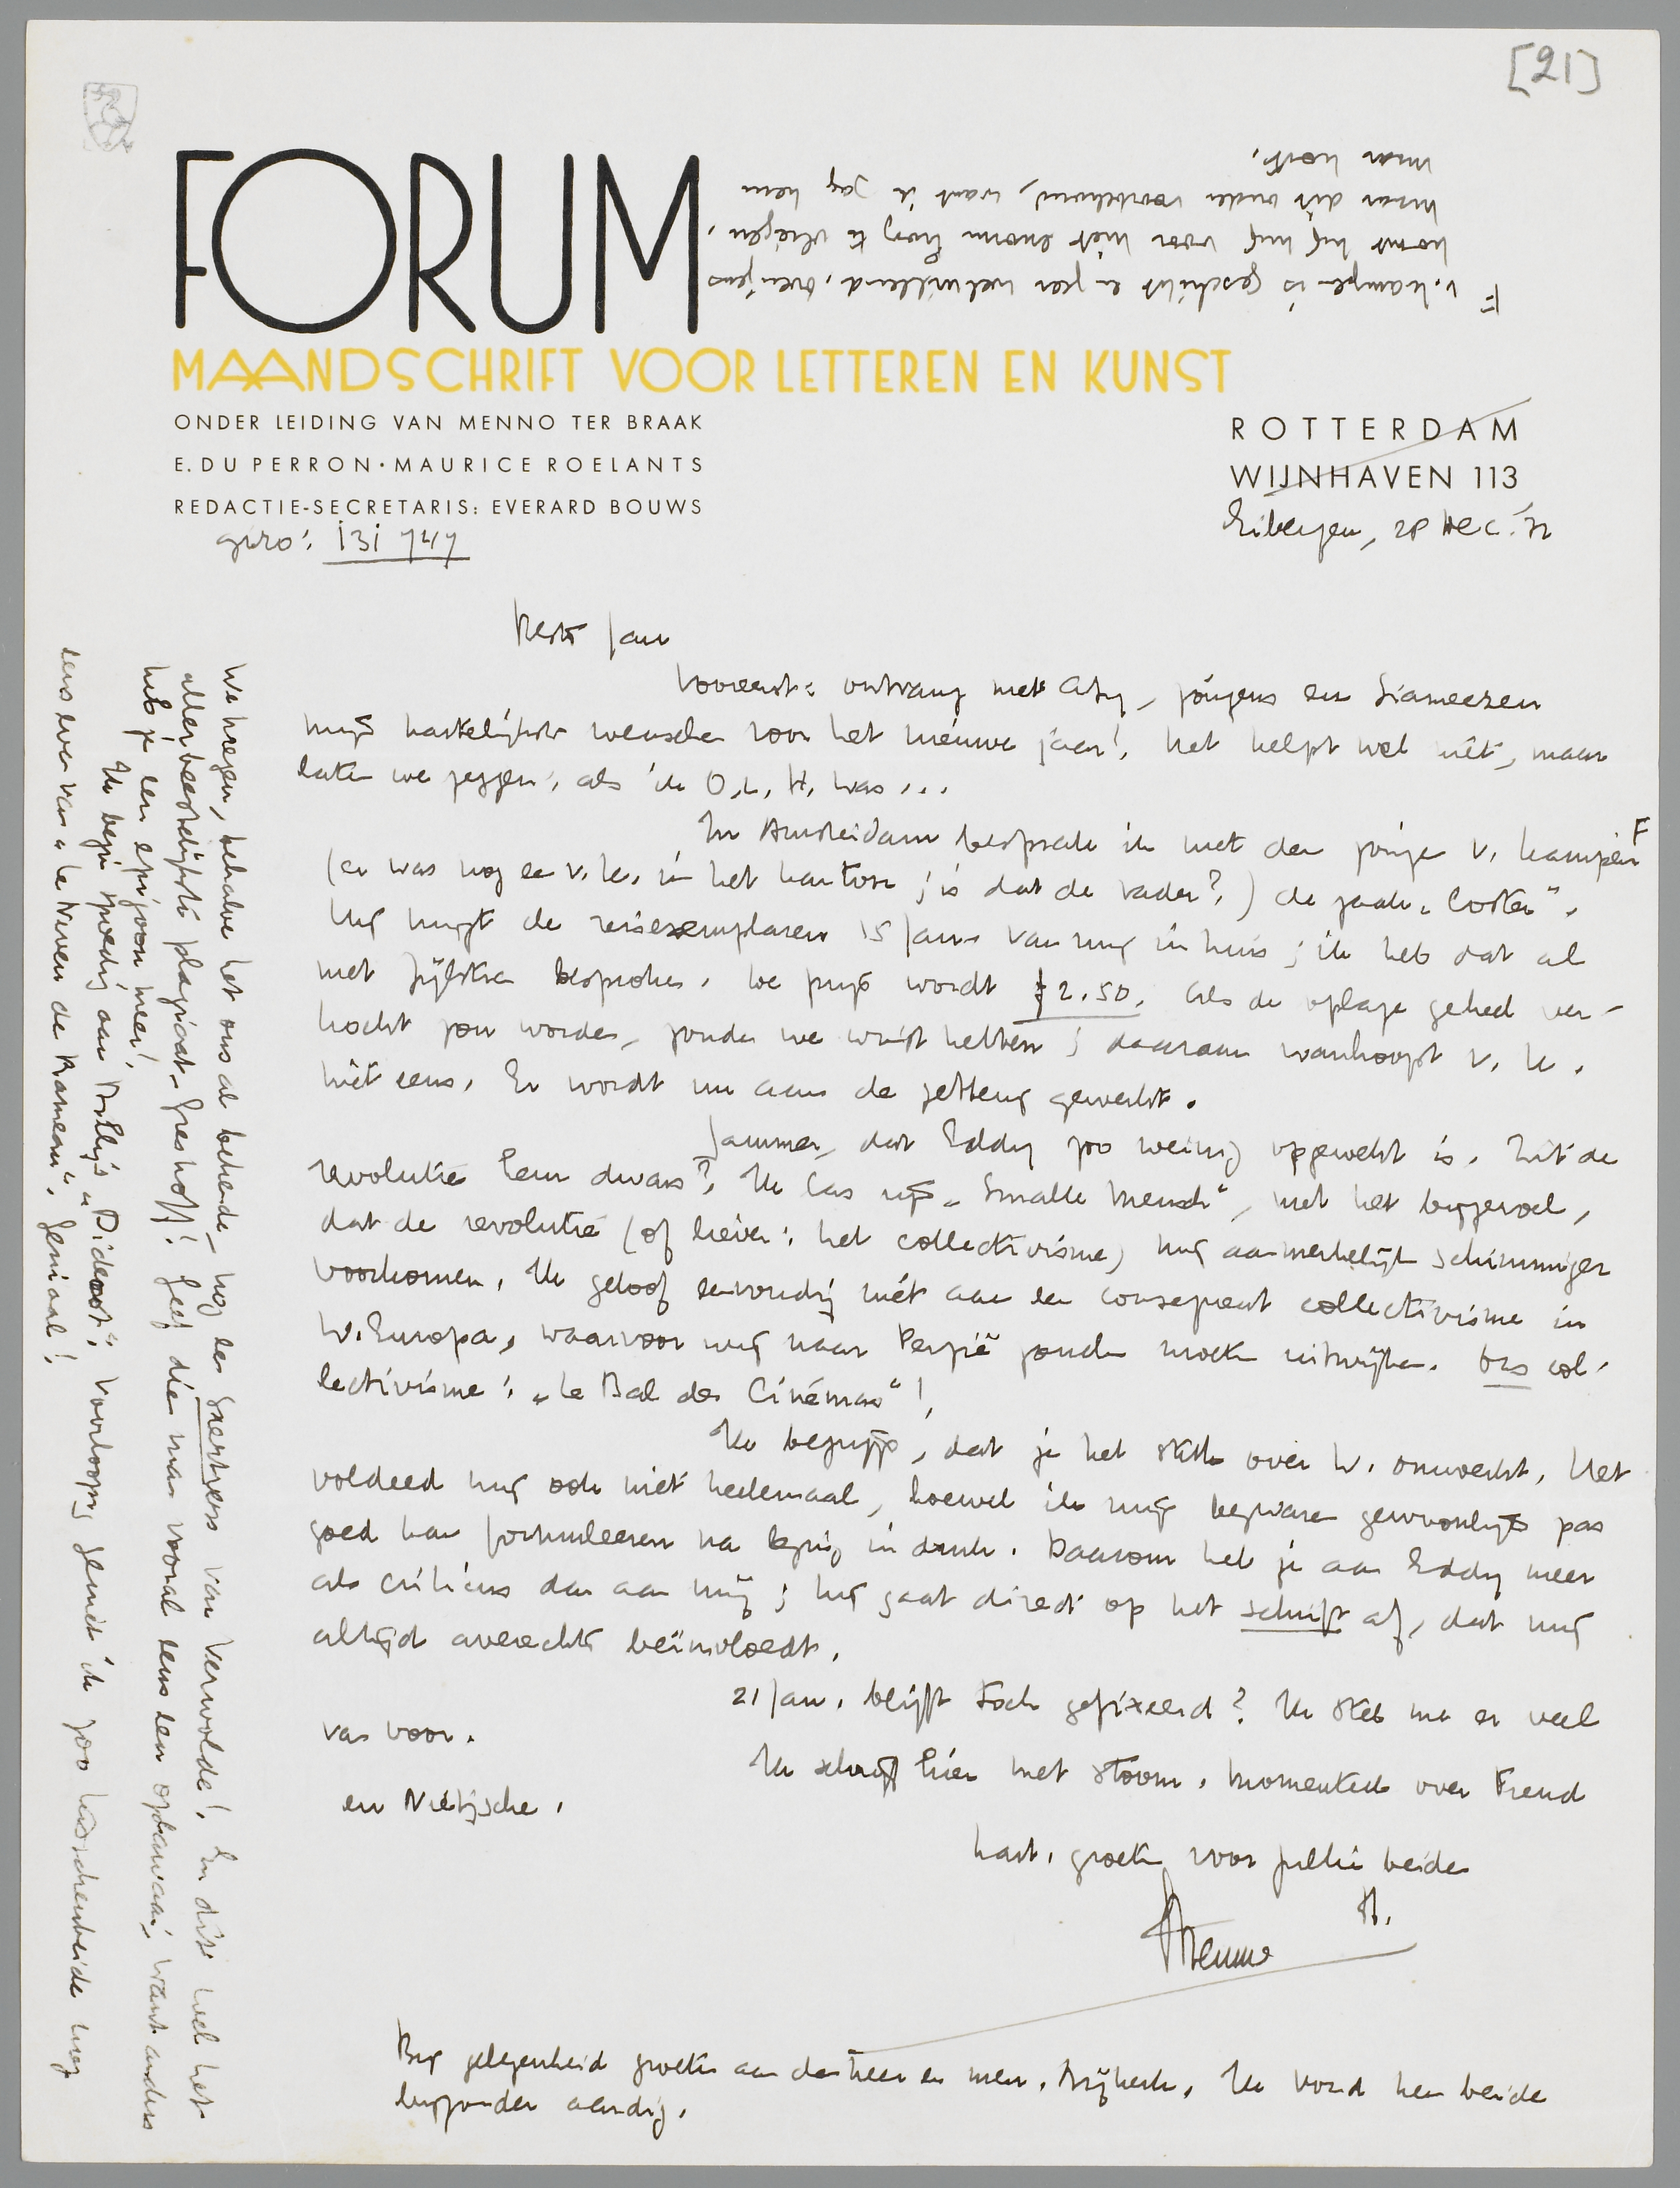 [21]
FORUM
MAANDSCHRIFT VOOR LETTEREN EN KUNST
ONDER LEIDING VAN MENNO TER BRAAK
E. DU PERRON · MAURICE ROELANTS
REDACTIE-SECRETARIS: EVERARD BOUWS
giro: 131747
ROTTERDAM
WIJNHAVEN 113
Eibergen, 28 Dec. '32
Beste Jan
Vooreerst: ontvang met Aty, jongens en Siameezen
mijn hartelijkste wenschen voor het nieuwe jaar! Het helpt wel niet, maar
laten we zeggen: als ik O.L.H. was...
In Amsterdam besprak ik met den jongen v. Kampen F
(er was nog een v. K. in het kantoor; is dat de vader?) de zaak „Coster".
Hij krijgt de reisexemplaren 15 Jan. van mij in huis; ik heb dat al
met Zijlstra besproken. De prijs wordt f 2.50. Als de oplage geheel ver-
kocht zou worden, zouden we winst hebben; daaraan wanhoopt v. K.
niet eens. Er wordt nu aan de zetterij gewerkt.
Jammer, dat Eddy zoo weinig opgewekt is. Zit de
revolutie hem dwars? Ik las zijn „Smalle Mensch", met het bijgevoel,
dat de revolutie (of liever: het collectivisme) mij aanmerkelijk schimmiger
voorkomen. Ik geloof eenvoudig niet aan een consequent collectivisme in
W. Europa, waarvoor wij naar Perzië zouden moeten uitwijken. Ons col-
lectivisme: „Le Bal des Cinémas"!
Ik begrijp, dat je het stuk over W. omwerkt. Het
voldeed mij ook niet heelemaal, hoewel ik mijn bezwaren gewoonlijk pas
goed kan formuleeren na lezing in druk. Daarom heb je aan Eddy meer
als criticus dan aan mij; hij gaat direct op het schrift af, dat mij
altijd averechts beïnvloedt.
21 Jan. blijft toch gefixeerd? Ik stel me er veel
van voor.
Ik schrijf hier met stoom. Momenteel over Freud
en Nietzsche.
hart. groeten voor jullie beiden
je
Menno
Bij gelegenheid groeten aan den heer en mevr. Nijkerk. Ik vond hen beide
bijzonder aardig.
We kregen, behalve het ons al bekende, nog een grensgeval van Vervolde! En dit wel het
allerbeestelijkste plagiaat-Greshoff! Geef dien man vooral eens een opdonder, want anders
heb je een epigoon meer!
Ik begin spoedig aan Billy's „Diderot"; voorloopig geniet ik
eens even van „Le Neveu de Rameau". Geniaal!
F v. Kampen is geschikt en zeer welwillend. Overigens
komt hij mij voor niet enorm hoog te vliegen,
maar dit onder voorbehoud, want ik zag hem
maar kort.